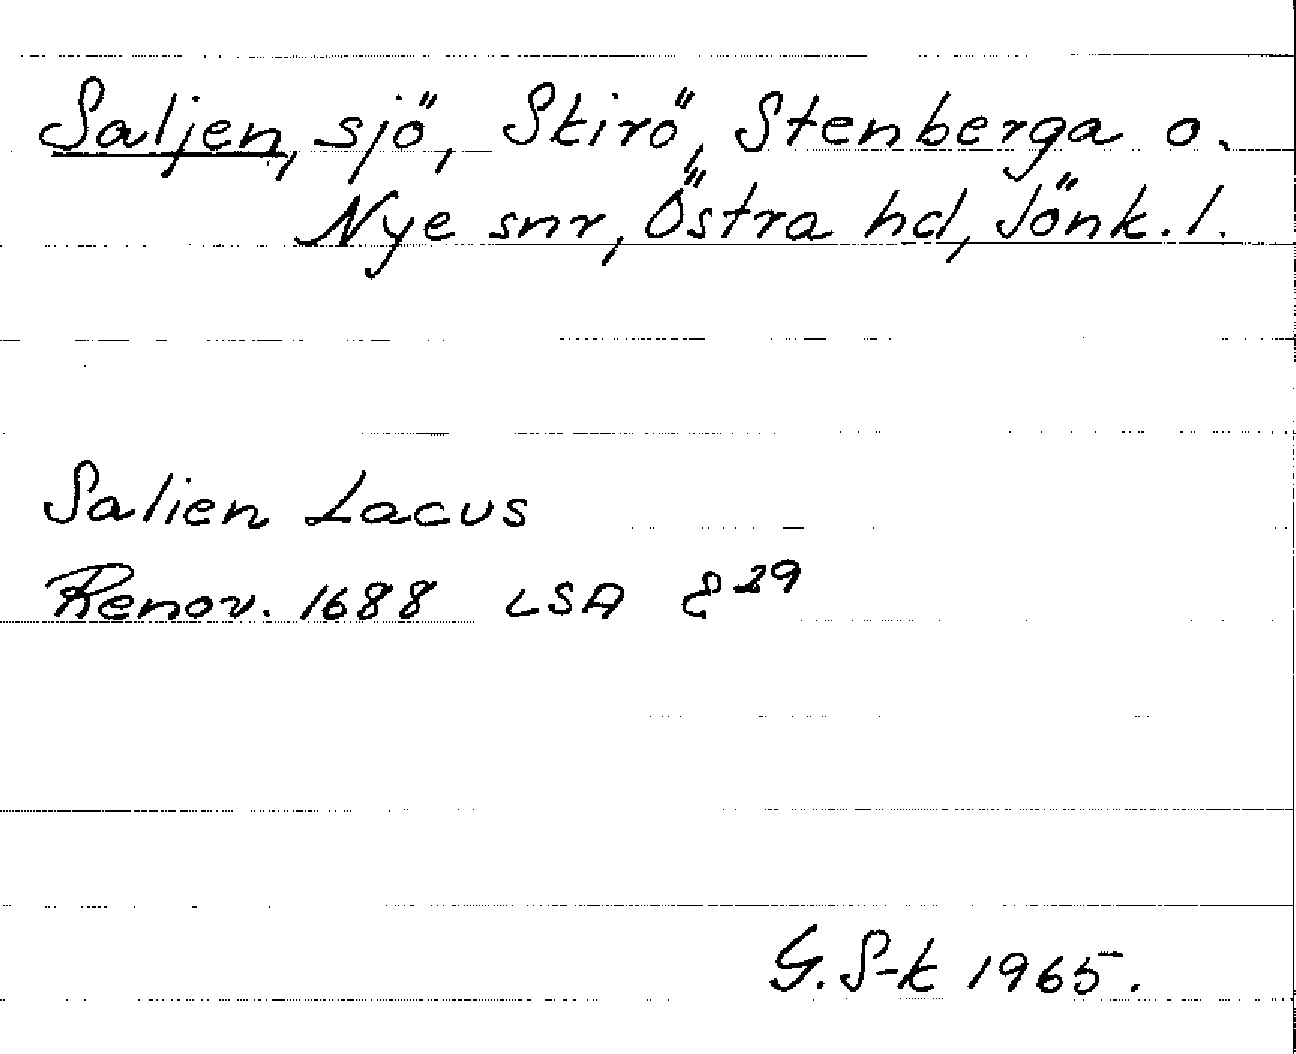 Saljen, sjö, Skirö, Stenberga o.
Nye snr, Östra hd, Jönk. l.
Salien Lacus
Renov. 1688 LSA E 29
G. S-k 1965.